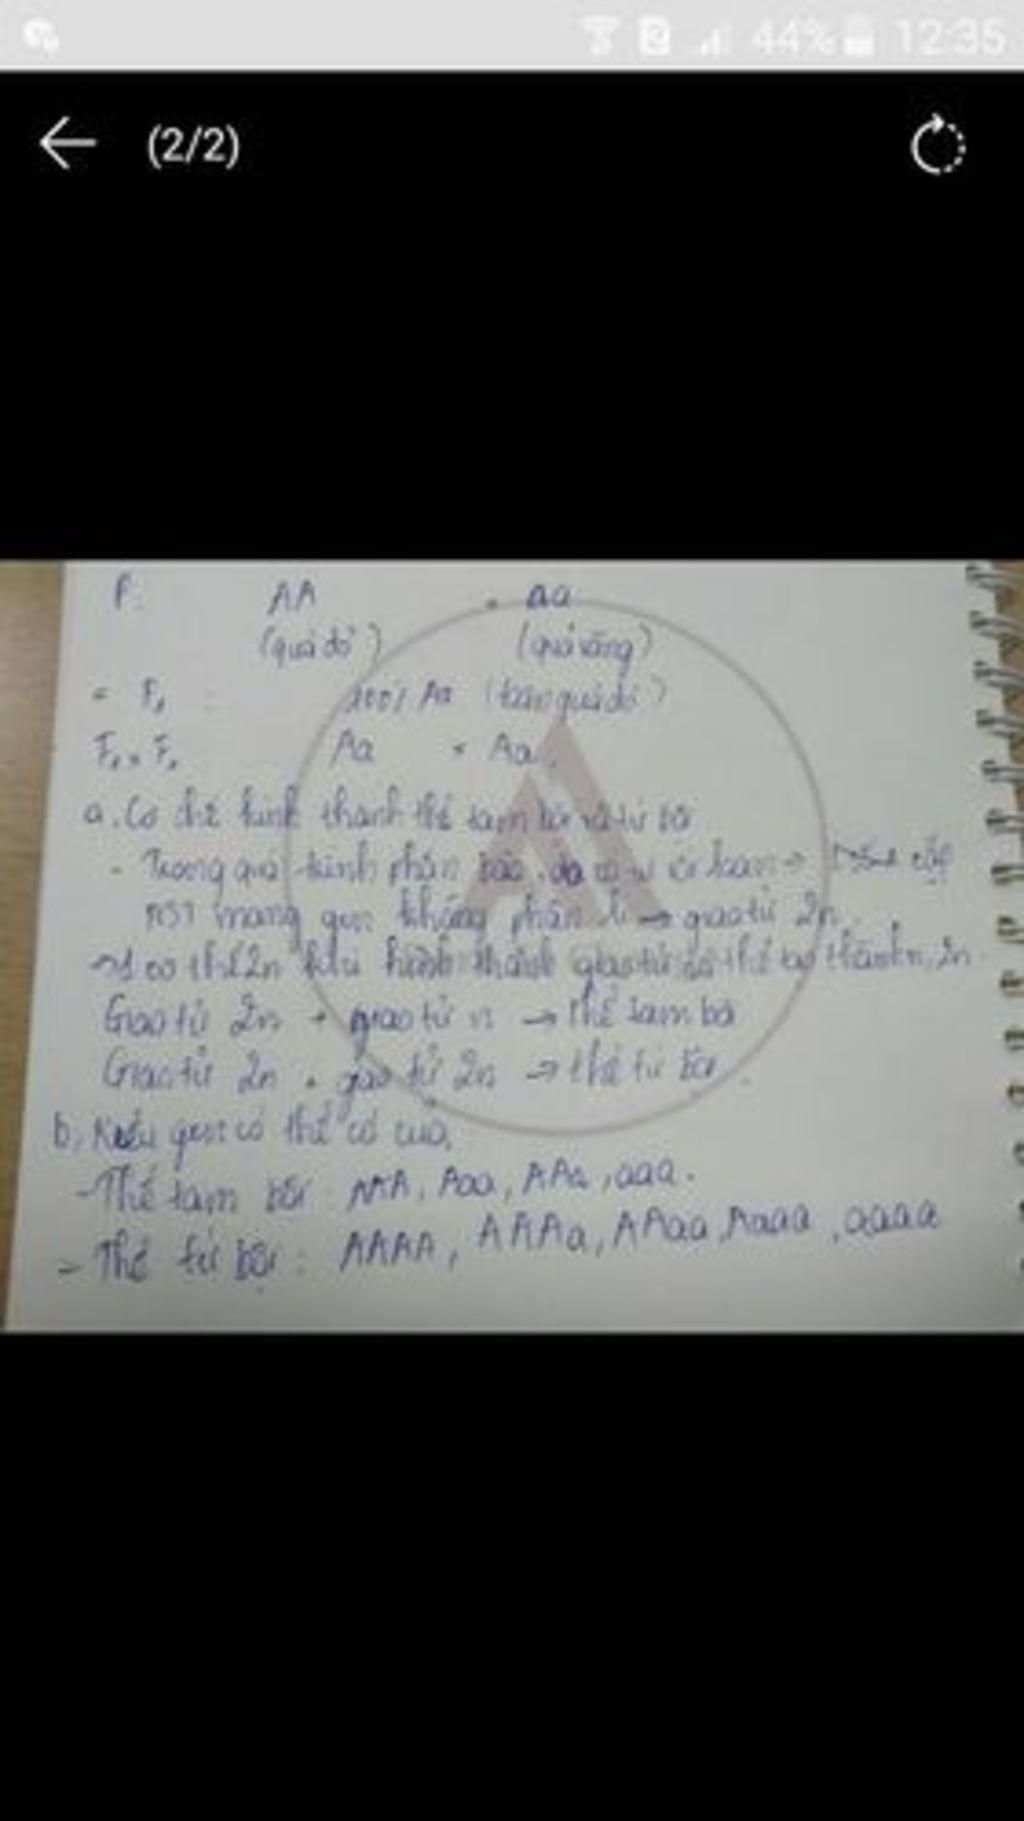 44% 12:35
(2/2)
P: AA × aa
(quả đỏ) (quả vàng)
= F₁ : 100% Aa (toàn quả đỏ)
F₁ × F₁ Aa × Aa
a. Cơ chế hình thành thể tam bội và tứ bội
- Trong quá trình phân bào, đã có sự rối loạn →
NST mang gen không phân li → giao tử 2n
→ 1 cơ thể 2n khi hình thành giao tử có thể tạo thành n, 2n
Giao tử 2n + giao tử n → thể tam bội
Giao tử 2n + giao tử 2n → thể tứ bội.
b, Kiểu gen có thể có của,
- Thể tam bội: AAA, Aaa, AAa, aaa.
- Thể tứ bội: AAAA, AAAa, AAaa, Aaaa, aaaa